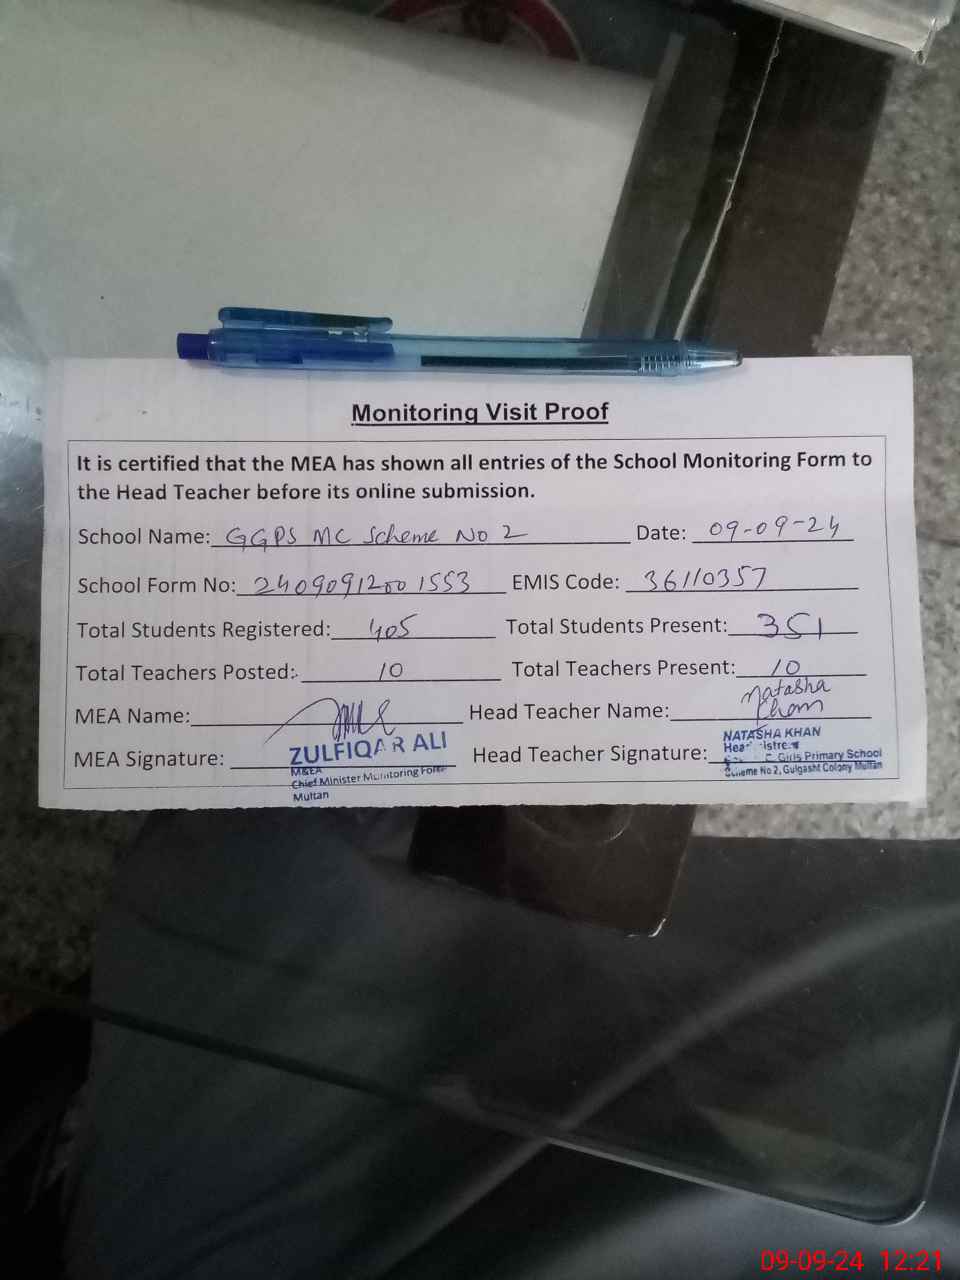 Monitoring Visit Proof
It is certified that the MEA has shown all entries of the School Monitoring Form to
the Head Teacher before its online submission.
School Name: GGPS MC Scheme No 2 Date: 09-09-24
School Form No: 24090912001553 EMIS Code: 36110357
Total Students Registered: 405 Total Students Present: 351
Total Teachers Posted: 10 Total Teachers Present: 10
MEA Name: Head Teacher Name: Natasha Khan
MEA Signature: Head Teacher Signature:
ZULFIQAR ALI
M&EA
Chief Minister Monitoring Force
Multan
NATASHA KHAN
Girls Primary School
Scheme No 2, Gulgasht Colony Multan
09-09-24 12:21